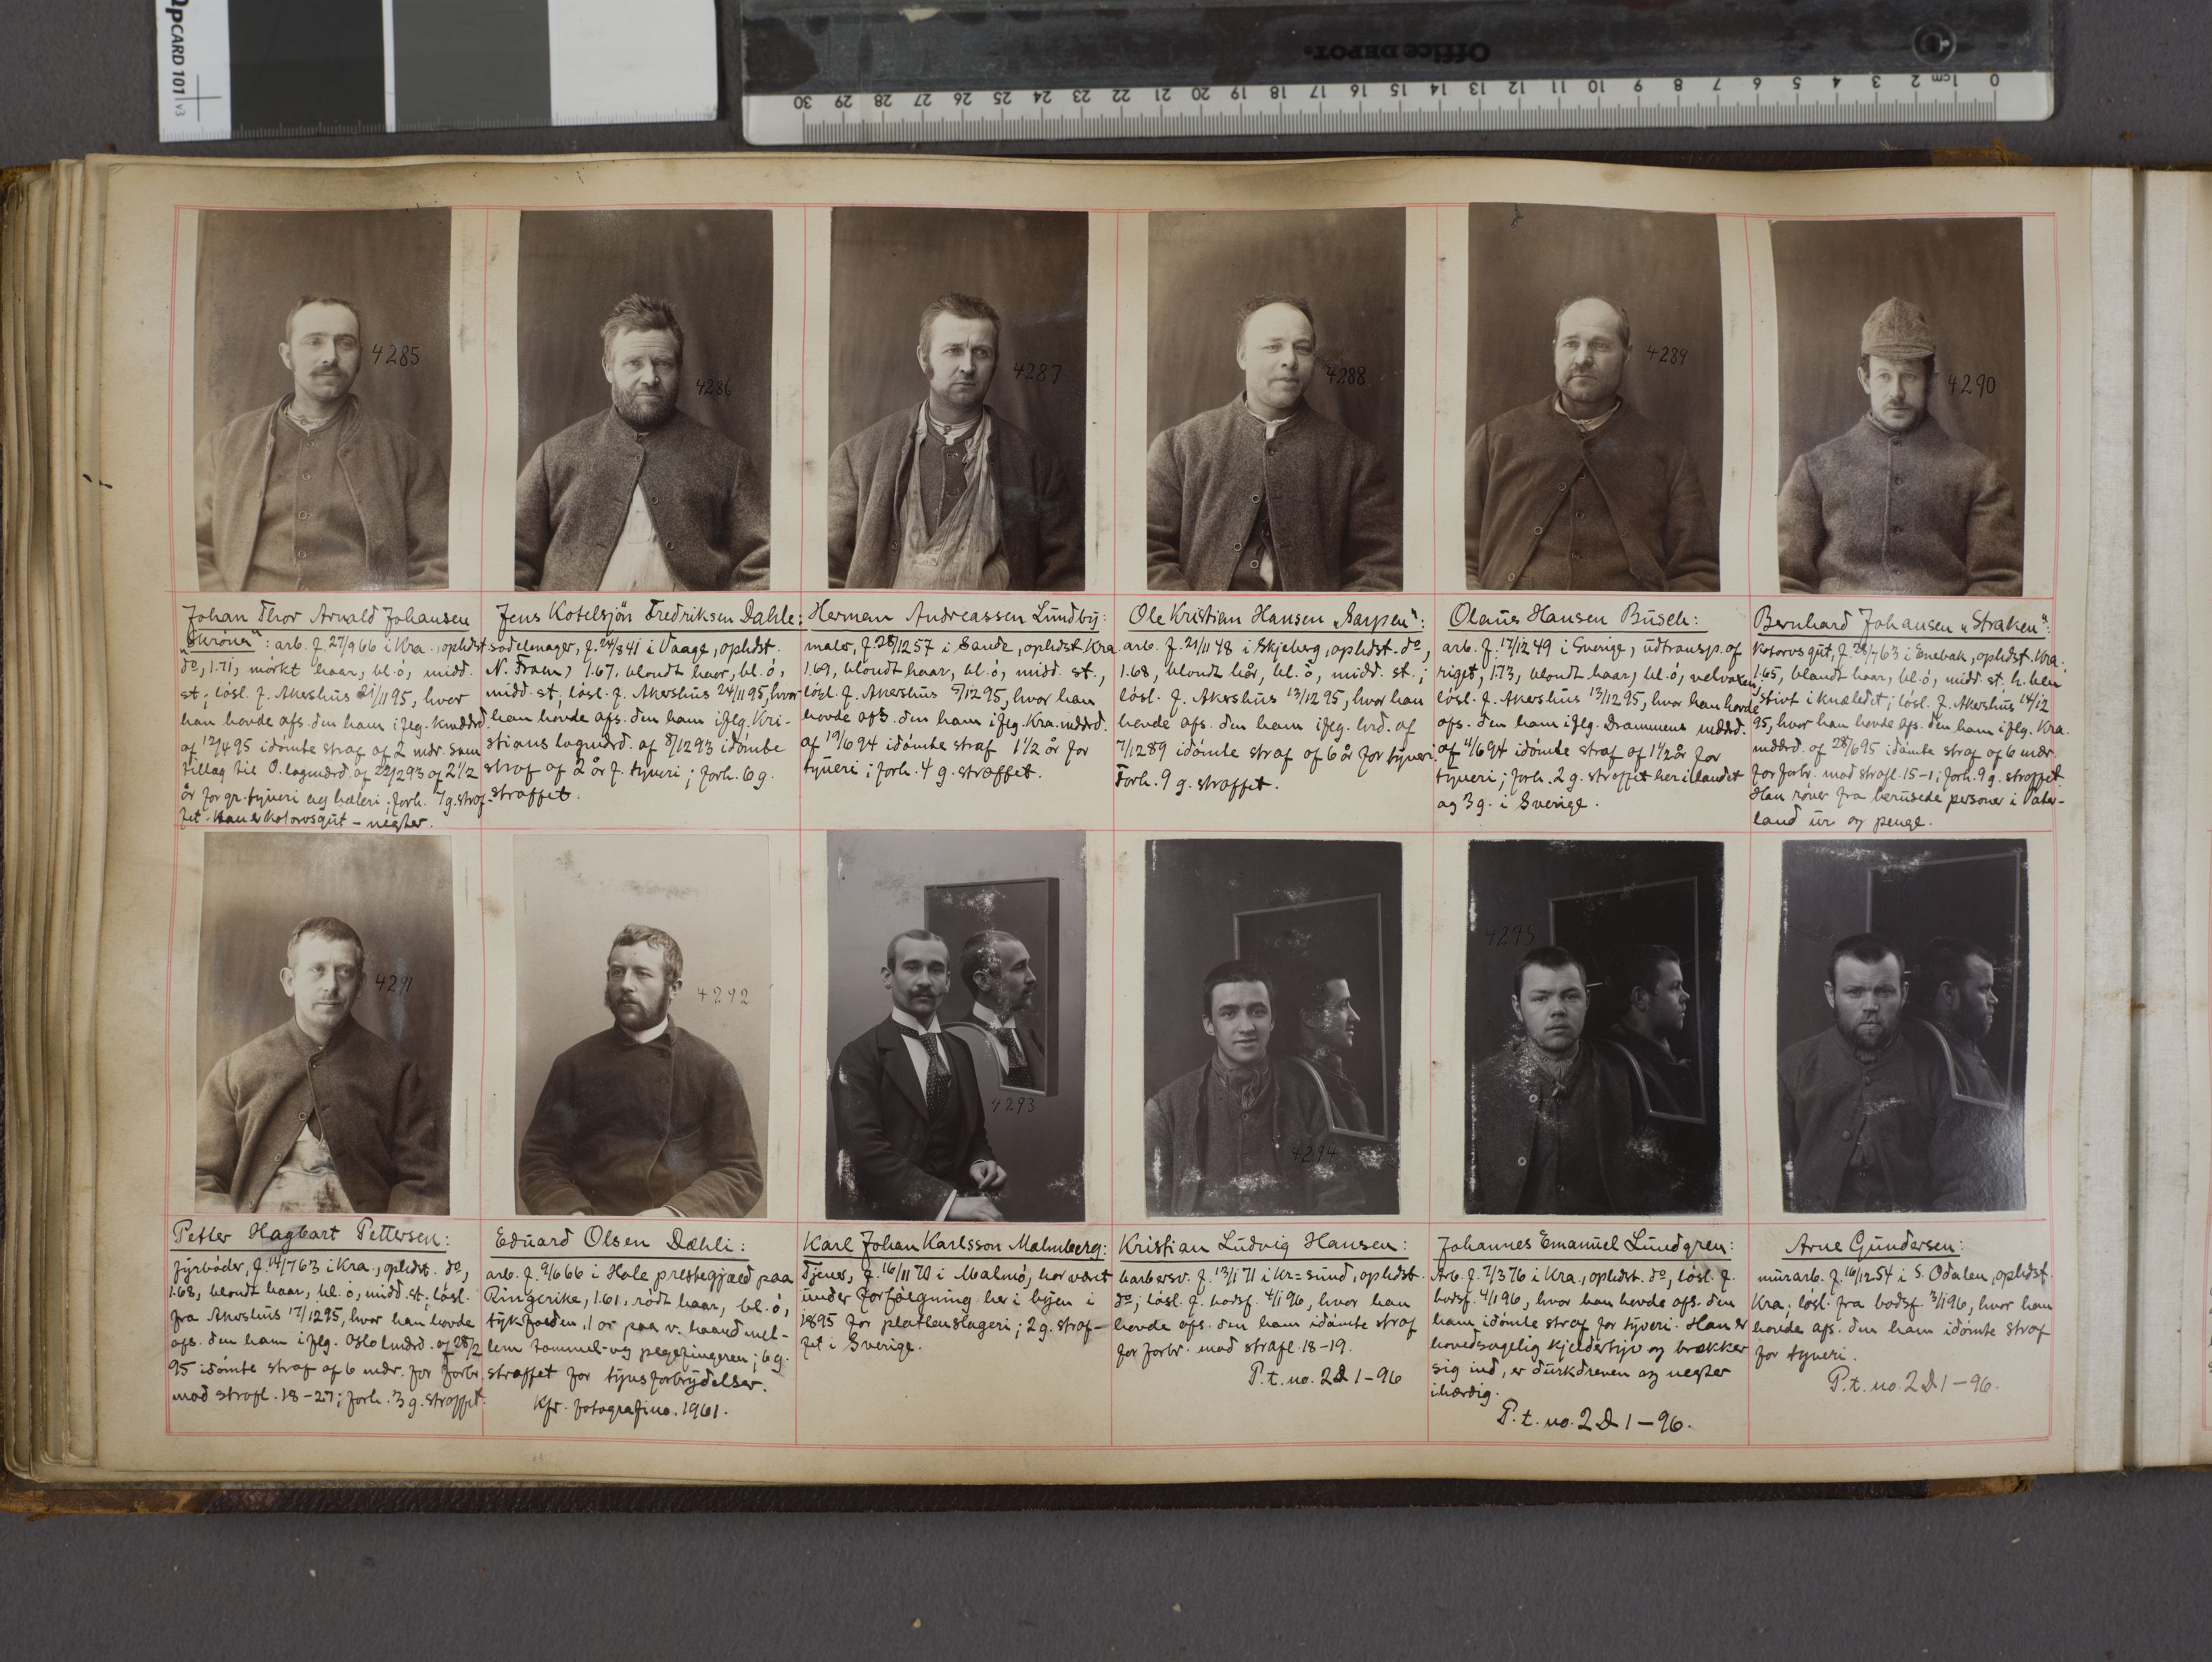 QPCARD 101 v3
Office DEPOT
0 1cm 2 3 4 5 6 7 8 9 10 11 12 13 14 15 16 17 18 19 20 21 22 23 24 25 26 27 28 29 30
4285
4286
4287
4288
4289
4290
Johan Thor Arnald Johansen
arb. f. 27/9 66 i Kra., ophdst
do, 1.71, mørkt haar, bl. ö, midd.
st; lösl. f. Akershus 21/11 95, hvor
han havde afs. den ham iflg. kmddrd.
af 12/4 95 idömte straf af 2 mdr. som
tillæg til O. lagmdrd. af 22/2 93 af 2 1/2
år for gr. tyveri og hæleri; forh. 7 g. straf-
fet. Han er kolorosgut - negter.
Jens Kotelsjön Fredriksen Dahle:
sadelmager, f. 24/8 41 i Vaage, ophdst.
N. Fron, 1.67, blondt haar, bl. ö,
midd. st, lösl. f. Akershus 24/11 95, hvor
han havde afs. den ham iflg. Kri-
stians lagmdrd. af 8/12 93 idömte
straf af 2 år f. tyveri; forh. 6 g.
straffet.
Herman Andreassen Lundby:
maler, f. 28/12 57 i Sande, ophdst. Kra.
1.69, blondt haar, bl. ö, midd. st.,
lösl. f. Akershus 5/12 95, hvor han
havde afs. den ham iflg. Kra. mddrd.
af 19/6 94 idömte straf 1 1/2 år for
tyveri; forh. 4 g. straffet.
Ole Kristian Hansen „Sarpen":
arb. f. 21/11 48 i Skjeberg, ophdst. do,
1.68, blondt hår, bl. ö, midd. st.;
lösl. f. Akershus 13/12 95, hvor han
havde afs. den ham iflg. hrd. af
7/12 89 idömte straf af 6 år for tyveri.
Forh. 9 g. straffet.
Olaus Hansen Busch:
arb. f. 17/12 49 i Sverige, udtransp. af
riget, 1.73, blondt haar, bl. ö, velvoxen,
lösl. f. Akershus 13/12 95, hvor han havde
afs. den ham iflg. Drammens mddrd.
af 11/6 94 idömte straf af 1 1/2 år for
tyveri; forh. 2 g. straffet her i landet
og 3 g. i Sverige.
Bernhard Johansen „Straken":
Kolorosgut, f. 28/7 63 i Enebak, ophdst. Kra.
1.65, blondt haar, bl. ö, midd. st. h. ben
stivt i knæledet; lösl. f. Akershus 14/12
95, hvor han havde afs. den ham iflg. Kra.
mddrd. af 28/6 95 idömte straf af 6 mdr.
for forbr. mod strafl. 15-1; forh. 9 g. straffet.
Han röver fra berusede personer i Vater-
land ur og penge.
4291
4292
4293
4294
4295
Petter Hagbart Pettersen:
fyrböder, f. 14/7 63 i Kra., ophdst. do,
1.68, blondt haar, bl. ö, midd. st; lösl.
fra Akershus 17/12 95, hvor han havde
afs. den ham iflg. Oslo lmdrd. af 28/2
95 idömte straf af 6 mdr. for forbr.
mod strafl. 18-27; forh. 3 g. straffet.
Eduard Olsen Dæhli:
arb. f. 9/6 66 i Hole prestegjæld paa
Ringerike, 1.61, rödt haar, bl. ö,
tykfalden, 1 ar paa v. haand mel-
lem tommel- og pegefingeren; 6 g.
straffet for tyvsforbrydelser.
Kfr. fotografi no. 1961.
Karl Johan Karlsson Malmberg:
Tjener, f. 16/11 70 i Malmö, har vært
under forfölgning her i byen i
1895 for plattenslageri; 2 g. straf-
fet i Sverige.
Kristian Ludvig Hansen:
barbersv. f. 13/1 71 i Kr=sund, ophdst.
do; lösl. f. bodsf. 4/1 96, hvor han
havde afs. den ham idömte straf
for forbr. mod strafl. 18-19.
P.t. no. 2 D 1-96
Johannes Emanuel Lundgren:
Arb. f. 7/3 76 i Kra., ophdst. do, lösl. f.
bodsf. 4/1 96, hvor han havde afs. den
ham idömte straf for tyveri. Han er
hovedsagelig kjeldertyv og brækker
sig ind, er durkdreven og negter
ihærdig.
P.t. no. 2 D 1-96.
Arne Gundersen:
murarb. f. 16/12 54 i S. Odalen, ophdst.
Kra; lösl. fra bodsf. 3/1 96, hvor han
havde afs. den ham idömte straf
for tyveri.
P.t. no. 2 D 1-96.